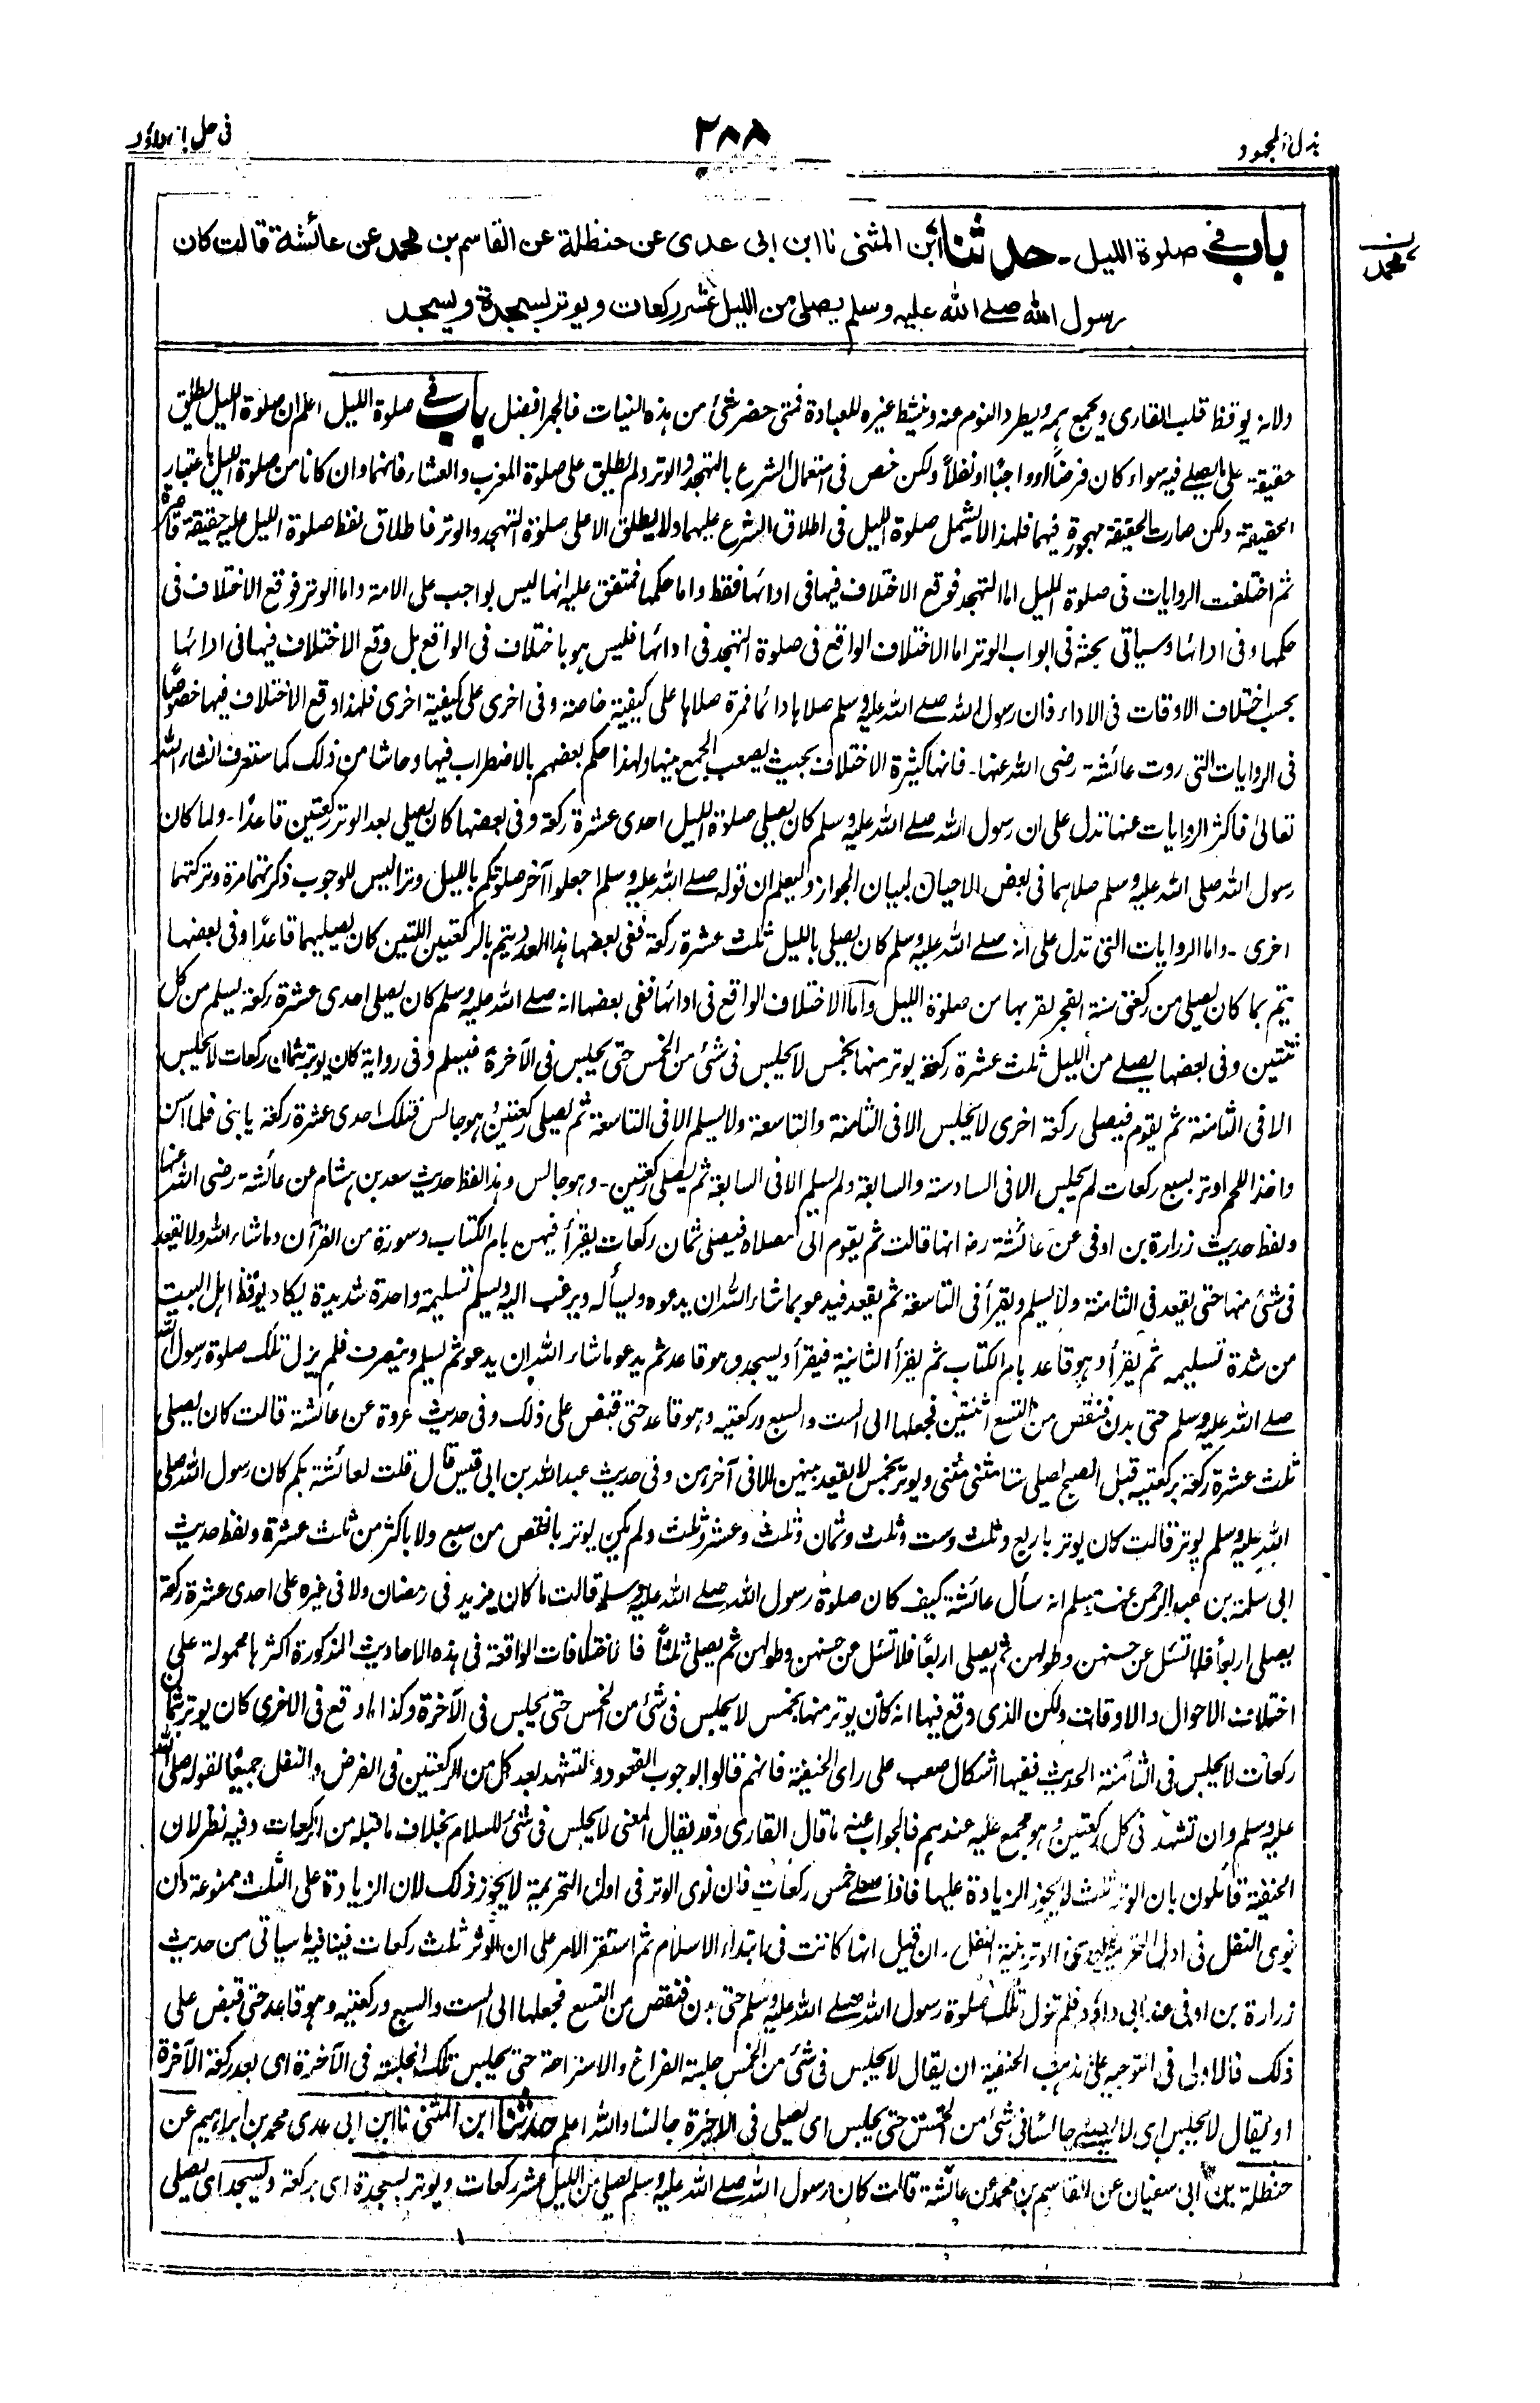 بذل المجهود
٢٨٨
فى حل ابى داؤد
باب فى صلوة الليل ـ حدثنا ابن المثنى نا ابن ابى عدى عن حنظلة عن القاسم بن محمد عن عائشة قالت كان
رسول الله صلے الله عليه وسلم يصلى من الليل عشر ركعات ويوتر بسجدة ويسجد
ولانه يوقظ قلب القارى ويجمع همه ويطرد النوم عنه وينشط غيره للعبادة فمتى حضر شئ من هذه النيات فالجهر افضل باب فى صلوة الليل اعلم ان صلوة الليل يطلق
حقيقة على ما يصلے فيه سواء كان فرضاً او واجبًا او نفلاً ولكن خص فى استعمال الشرع بالتهجد والوتر ولم يطلق على صلوة المغرب والعشاء فانهما وان كانا من صلوة الليل باعتبار
الحقيقة ولكن صارت الحقيقة مهجورة فيهما فلهذا لا يشمل صلوة الليل فى اطلاق الشرع عليهما ولا يطلق الا على صلوة التهجد والوتر فاطلاق لفظ صلوة الليل عليه حقيقة قاصرة
ثم اختلفت الروايات فى صلوة الليل اما التهجد فوقع الاختلاف فيها فى ادائها فقط واما حكمها فمتفق عليه انها ليس بواجب على الامة واما الوتر فوقع الاختلاف فى
حكمها وفى ادائها وسياتى بحثه فى ابواب الوتر اما الاختلاف الواقع فى صلوة التهجد فى ادائها فليس هو باختلاف فى الواقع بل وقع الاختلاف فيها فى ادائها
بحسب اختلاف الاوقات فى الاداء فان رسول الله صلے الله عليه وسلم صلاها دائما فمرة صلاها على كيفية خاصة وفى اخرى على كيفية اخرى فلهذا وقع الاختلاف فيها خصوصًا
فى الروايات التى روت عائشة رضى الله عنها ـ فانها كثيرة الاختلاف بحيث يصعب الجمع بينها ولهذا حكم بعضهم بالاضطراب فيها وحاشا من ذلك كما ستعرف انشاء الله
تعالىٰ فاكثر الروايات عنها تدل على ان رسول الله صلے الله عليه وسلم كان يصلى صلاة الليل احدى عشرة ركعة وفى بعضها كان يصلى بعد الوتر ركعتين قاعدًا ـ ولما كان
رسول الله صلى الله عليه وسلم صلاهما فى بعض الاحيان لبيان الجواز وليعلم ان قوله صلے الله عليه وسلم اجعلوا آخر صلوتكم بالليل وترا ليس للوجوب ذكرتهما مرة وتركتهما
اخرى ـ واما الروايات التى تدل على انه صلے الله عليه وسلم كان يصلى بالليل ثلث عشرة ركعة ففى بعضها هذا العدد يتم بالركعتين اللتين كان يصليهما قاعدًا وفى بعضها
يتم بما كان يصلى من ركعتى سنة الفجر لقربها من صلوة الليل واما الاختلاف الواقع فى ادائها ففى بعضها انه صلے الله عليه وسلم كان يصلى احدى عشرة ركعة يسلم من كل
ثنتين وفى بعضها يصلے من الليل ثلث عشرة ركعة يوتر منها بخمس لا يجلس فى شئ من الخمس حتى يجلس فى الآخرة فيسلم وفى رواية كان يوتر بثمان ركعات لا يجلس
الا فى الثامنة ثم يقوم فيصلى ركعة اخرى لا يجلس الا فى الثامنة والتاسعة ولا يسلم الا فى التاسعة ثم يصلى ركعتين وهو جالس فتلك احدى عشرة ركعة يا بنى فلما اسن
واخذ اللحم اوتر بسبع ركعات لم يجلس الا فى السادسة والسابعة ولم يسلم الا فى السابعة ثم يصلى ركعتين ـ وهو جالس وهذا لفظ حديث سعد بن هشام عن عائشة رضى الله عنها
ولفظ حديث زرارة بن اوفى عن عائشة رض انها قالت ثم يقوم الى مصلاه فيصلى ثمان ركعات يقرأ فيهن بام الكتاب وسورة من القرآن وماشاء الله ولا يقعد
فى شئ منها حتى يقعد فى الثامنة ولا يسلم ويقرأ فى التاسعة ثم يقعد فيدعو بما شاء الله ان يدعوه ويسأله ويرغب اليه ويسلم تسليمة واحدة شديدة يكاد يوقظ اهل البيت
من شدة تسليمه ثم يقرأ وهو قاعد بام الكتاب ثم يقرأ الثانية فيقرأ ويسجد وهو قاعد ثم يدعو ماشاء الله ان يدعو ثم يسلم وينصرف فلم يزل تلك صلوة رسول الله
صلے الله عليه وسلم حتى بدن فنقص من التسع اثنتين فجعلها الى الست والسبع وركعتيه وهو قاعد حتى قبض على ذلك وفى حديث عروة عن عائشة قالت كان يصلى
ثلث عشرة ركعة بركعتيه قبل الصبح يصلى ستا مثنى مثنى ويوتر بخمس لا يقعد بينهن الا فى آخرهن وفى حديث عبد الله بن ابى قيس قال قلت لعائشة بكم كان رسول الله صلى
الله عليه وسلم يوتر قالت كان يوتر باربع وثلث وست وثلث وثمان وثلث وعشر وثلث ولم يكن يوتر بانقص من سبع ولا باكثر من ثلث عشرة ولفظ حديث
ابى سلمة بن عبد الرحمن عند مسلم انه سأل عائشة كيف كان صلوة رسول الله صلے الله عليه وسلم قالت ما كان يزيد فى رمضان ولا فى غيره على احدى عشرة ركعة
يصلى اربعًا فلا تسئل عن حسنهن وطولهن ثم يصلى اربعًا فلا تسئل عن حسنهن وطولهن ثم يصلى ثلثًا فالاختلافات الواقعة فى هذه الاحاديث المذكورة اكثرها محمولة على
اختلاف الاحوال والاوقات ولكن الذى وقع فيها انه كان يوتر منها بخمس لا يجلس فى شئ من الخمس حتى يجلس فى الآخرة وكذا ما وقع فى الاخرى كان يوتر بثمان
ركعات لا يجلس فى الثامنة الحديث ففيها اشكال صعب على راى الحنفية فانهم قالوا بوجوب القعود والتشهد بعد كل من الركعتين فى الفرض والنفل جميعًا لقوله صلى الله
عليه وسلم وان تشهد فى كل ركعتين وهو مجمع عليه عندهم فالجواب عنه ما قال القارى وقد يقال المعنى لا يجلس فى شئ للسلام بخلاف ما قبله من الركعات وفيه نظر لان
الحنفية قائلون بان الوتر ثلث لا يجوز الزيادة عليها فاذا صلے خمس ركعات فان نوى الوتر فى اول التحريمة لا يجوز ذلك لان الزيادة على الثلث ممنوعة وان
نوى النفل فى اول التحريمة الوتر بنية النفل ـ ان قيل انها كانت فى ابتداء الاسلام ثم استقر الامر على ان الوتر ثلث ركعات فينافيه ما سياتى من حديث
زرارة بن اوفى عند ابى داؤد فلم تزل تلك صلوة رسول الله صلے الله عليه وسلم حتى بدن فنقص من التسع فجعلها الى الست والسبع وركعتيه وهو قاعد حتى قبض على
ذلك فالاولى فى التوجيه على مذهب الحنفية ان يقال لا يجلس فى شئ من الخمس جلسة الفراغ والاستراحة حتى يجلس تلك الجلسة فى الآخرة اى بعد ركعة الآخرة
او يقال لا يجلس اى لا يصلے جالسًا فى شئ من الخمس حتى يجلس اى يصلى فى الاخيرة جالسا والله اعلم حدثنا ابن المثنى نا ابن ابى عدى محمد بن ابراهيم عن
حنظلة بن ابى سفيان عن القاسم بن محمد عن عائشة قالت كان رسول الله صلے الله عليه وسلم يصلى من الليل عشر ركعات ويوتر بسجدة اى بركعة ويسجد اى يصلى